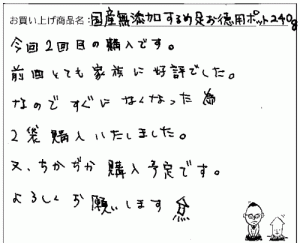 お買い上げ商品名：国産無添加するめ足お徳用ポット240g
今回2回目の購入です。
前回とても家族に好評でした。
なのですぐになくなった
2袋購入いたしました。
又、ちかぢか購入予定です。
よろしくお願いします